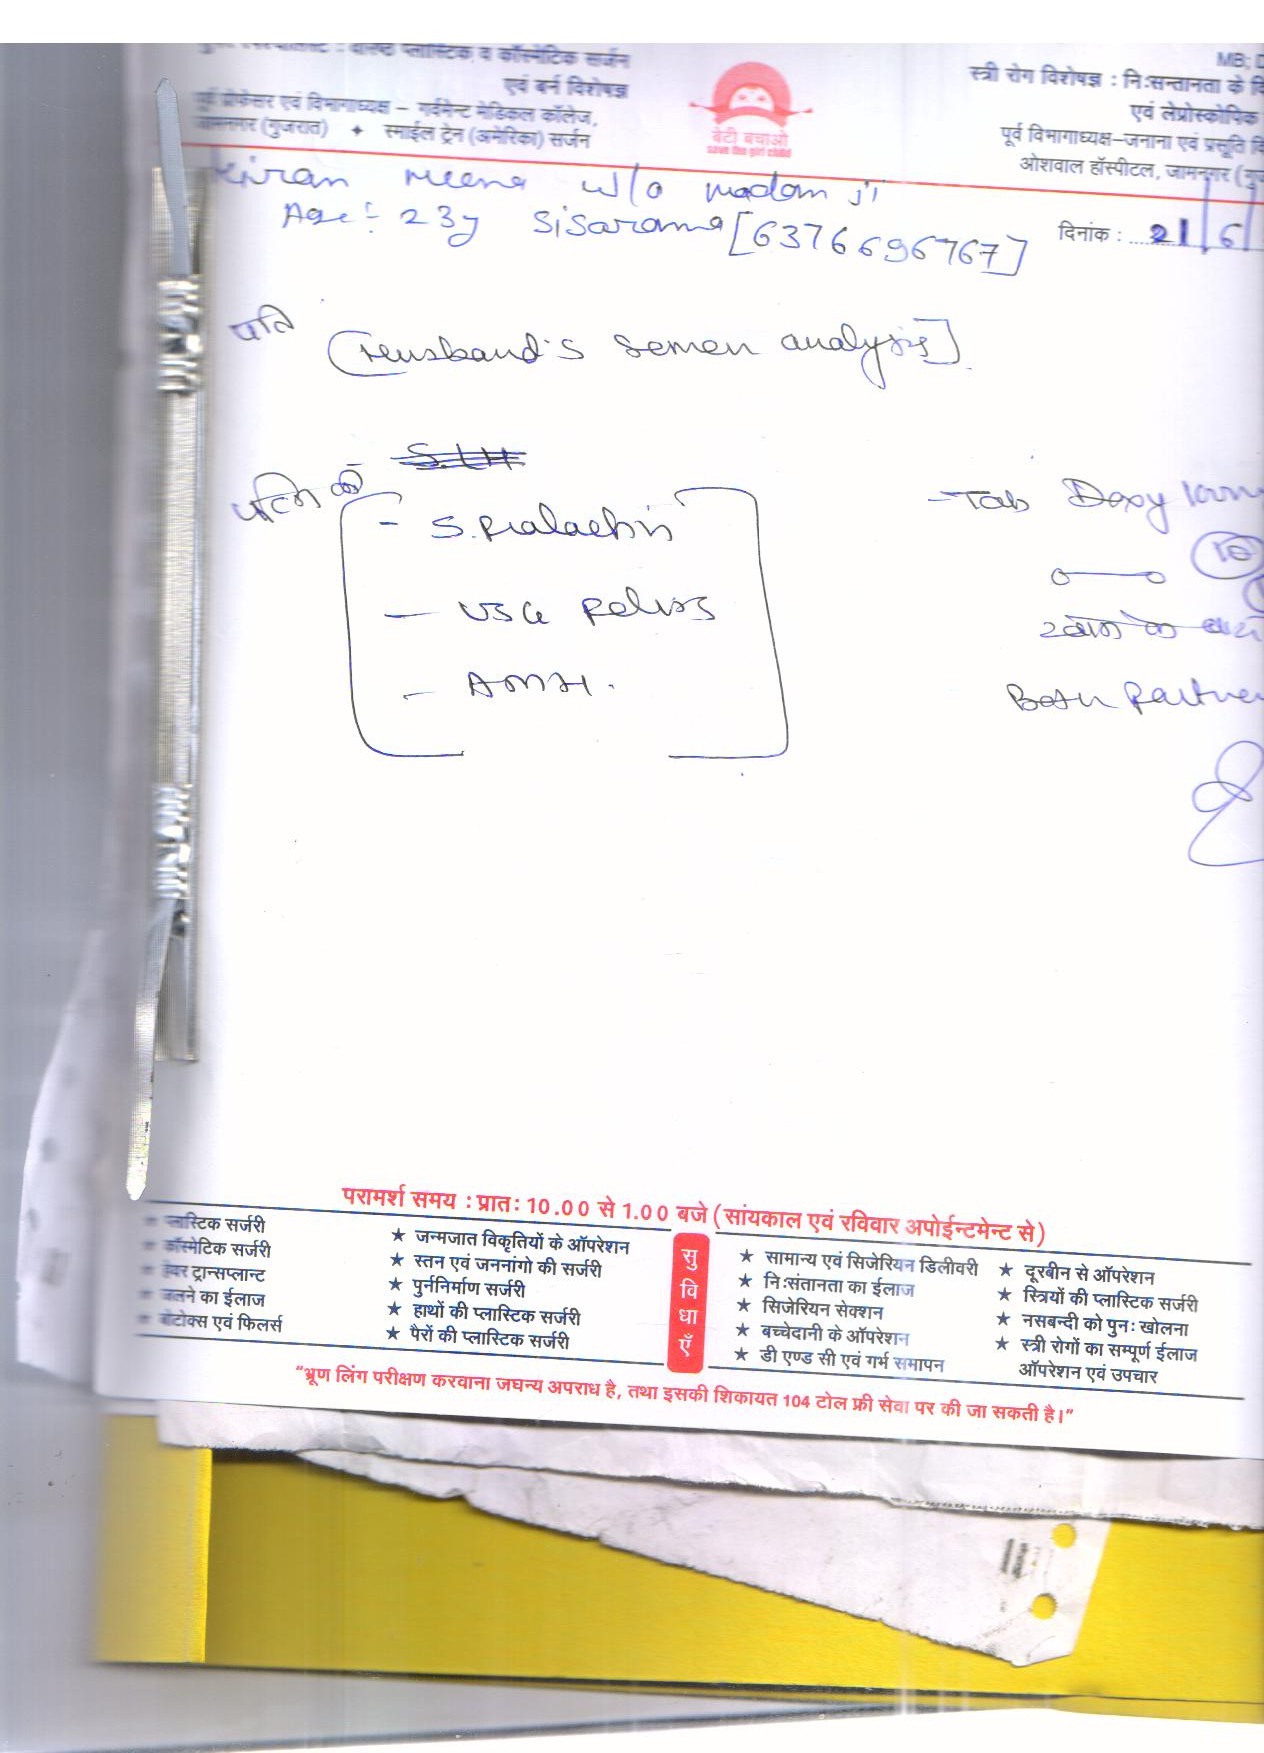 वरिष्ठ प्लास्टिक व कॉस्मेटिक सर्जन
एवं बर्न विशेषज्ञ
पूर्व प्रोफेसर एवं विभागाध्यक्ष – गर्वमेन्ट मेडिकल कॉलेज,
जामनगर (गुजरात) ✦ स्माईल ट्रेन (अमेरिका) सर्जन
बेटी बचाओ
save the girl child
MB;
स्त्री रोग विशेषज्ञ : निःसन्तानता के
एवं लेप्रोस्कोपिक
पूर्व विभागाध्यक्ष–जनाना एवं प्रसूति
ओशवाल हॉस्पीटल, जामनगर
Kiran meena w/o madan ji
Age :- 23y Sisarama [6376696767]
दिनांक : 21/6/
पति
[Husband's Semen analysis]
पत्नि की
- S. Prolactin
- USG Pelvis
- AMH.
- Tab Doxy
10
Both Partner
परामर्श समय : प्रातः 10.00 से 1.00 बजे (सांयकाल एवं रविवार अपोईन्टमेन्ट से)
★ प्लास्टिक सर्जरी
★ कॉस्मेटिक सर्जरी
★ हेयर ट्रान्सप्लान्ट
★ जलने का ईलाज
★ बोटोक्स एवं फिलर्स
★ जन्मजात विकृतियों के ऑपरेशन
★ स्तन एवं जननांगो की सर्जरी
★ पुर्ननिर्माण सर्जरी
★ हाथों की प्लास्टिक सर्जरी
★ पैरों की प्लास्टिक सर्जरी
सुविधाएँ
★ सामान्य एवं सिजेरियन डिलीवरी
★ निःसंतानता का ईलाज
★ सिजेरियन सेक्शन
★ बच्चेदानी के ऑपरेशन
★ डी एण्ड सी एवं गर्भ समापन
★ दूरबीन से ऑपरेशन
★ स्त्रियों की प्लास्टिक सर्जरी
★ नसबन्दी को पुनः खोलना
★ स्त्री रोगों का सम्पूर्ण ईलाज
ऑपरेशन एवं उपचार
"भ्रूण लिंग परीक्षण करवाना जघन्य अपराध है, तथा इसकी शिकायत 104 टोल फ्री सेवा पर की जा सकती है।"